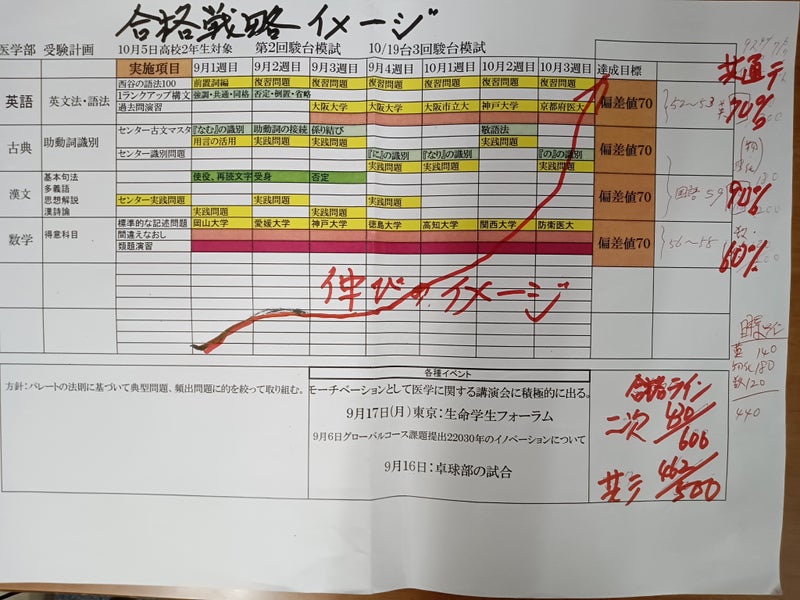 合格戦略イメージ
医学部 受験計画 10月5日高校2年生対象 第2回駿台模試 10/19台3回駿台模試
実施項目 9月1週目 9月2週目 9月3週目 9月4週目 10月1週目 10月2週目 10月3週目 達成目標
共通テ
英語 英文法・語法 偏差値70 52〜53 70%
西谷の語法100 前置詞編 復習問題 復習問題 復習問題 復習問題 復習問題 復習問題
1ランクアップ構文 強調・共通・同格 否定・倒置・省略
過去問演習 大阪大学 大阪大学 大阪市立大 神戸大学 京都府医大
古典 助動詞識別 偏差値70
センター古文マスタ 『なむ』の識別 助動詞の接続 係り結び 敬語法
用言の活用 実践問題 実践問題 実践問題
センター識別問題 『に』の識別 『なり』の識別 『の』の識別
実践問題 実践問題 実践問題
漢文 偏差値70 国語 59 90%
基本句法 使役、再読文字 受身 否定
多義語
思想解説 センター実践問題 実践問題 実践問題
漢詩論 実践問題 実践問題
数学 得意科目 偏差値70 56〜58 60%
標準的な記述問題 岡山大学 愛媛大学 神戸大学 徳島大学 高知大学 関西大学 防衛医大
間違えなおし
類題演習
伸びのイメージ
目標ライン
英 140
物化 180
数 120
440
方針:パレートの法則に基づいて典型問題、頻出問題に的を絞って取り組む。
各種イベント
モーチベーションとして医学に関する講演会に積極的に出る。
9月17日(月)東京:生命学生フォーラム
9月6日グローバルコース課題提出22030年のイノベーションについて
9月16日:卓球部の試合
合格ライン
二次 430/600
共テ 462/500